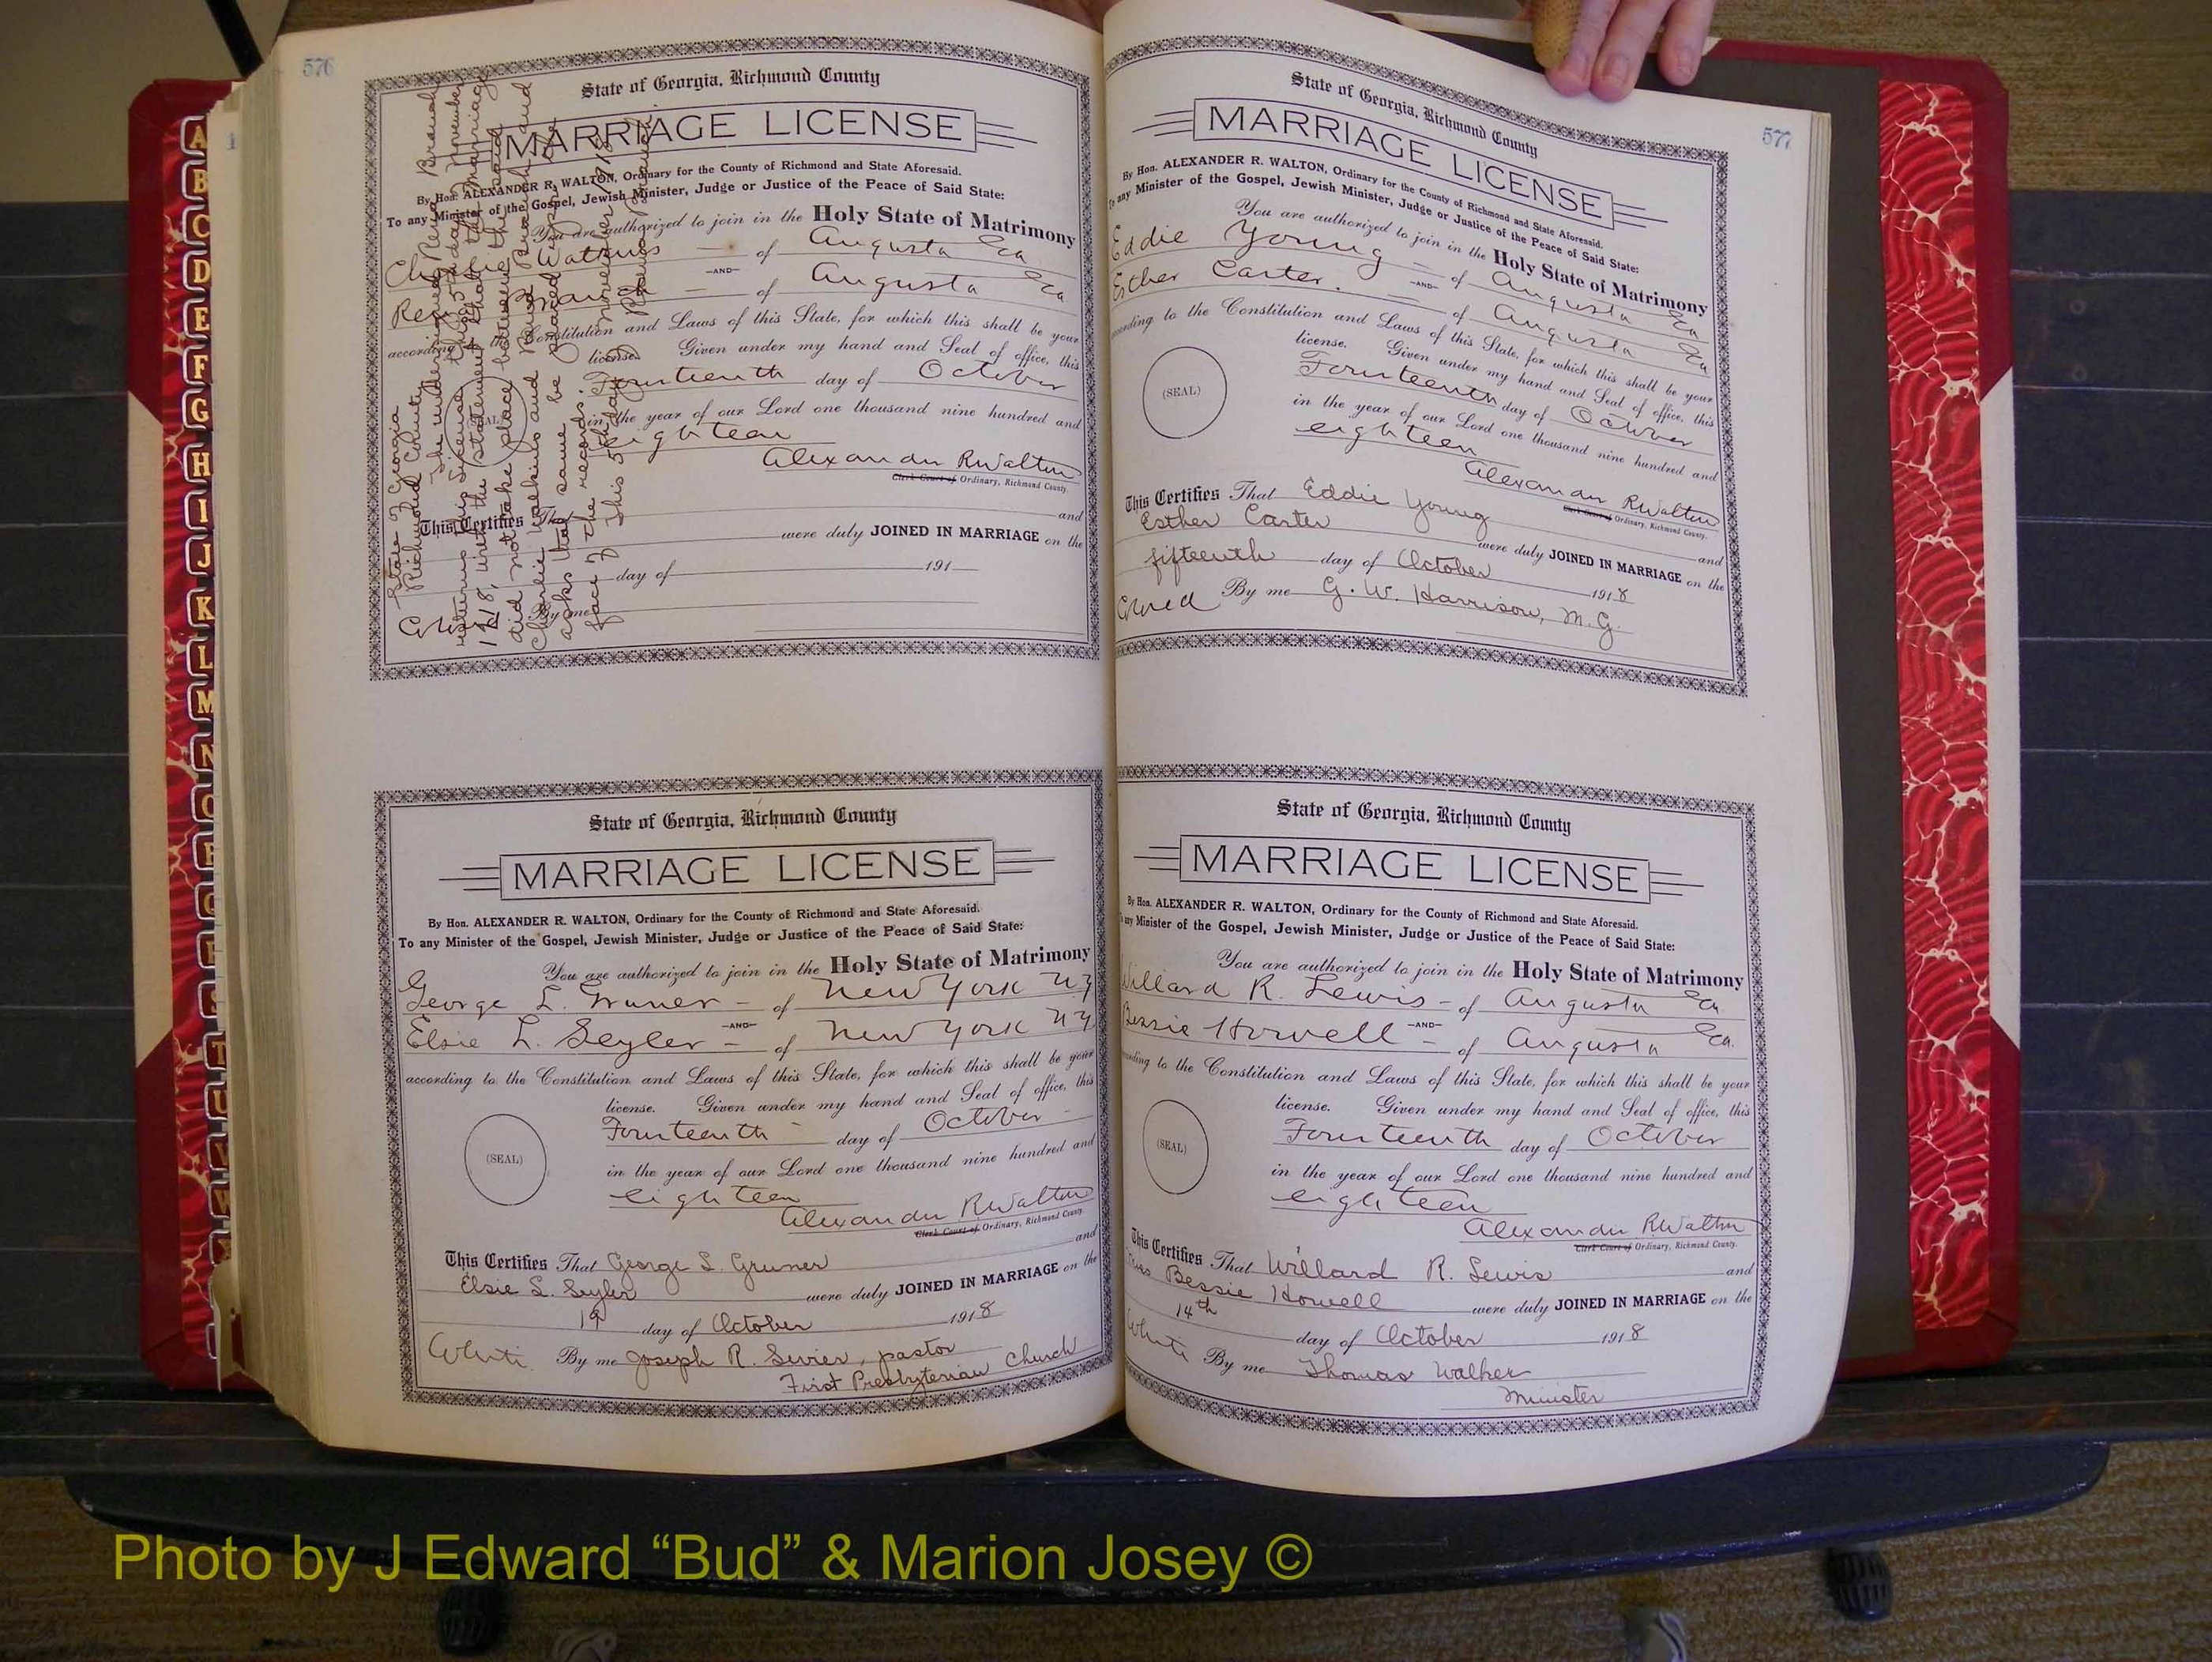 576
State of Georgia, Richmond County
MARRIAGE LICENSE
By Hon. ALEXANDER R. WALTON, Ordinary for the County of Richmond and State Aforesaid.
To any Minister of the Gospel, Jewish Minister, Judge or Justice of the Peace of Said State:
You are authorized to join in the Holy State of Matrimony
Charlie Watkins — of Augusta Ga
—AND—
— of Augusta Ga
according to the Constitution and Laws of this State, for which this shall be your
license. Given under my hand and Seal of office, this
Fourteenth day of October
in the year of our Lord one thousand nine hundred and
eighteen
Alexander R Walton
Clerk Court of Ordinary, Richmond County.
This Certifies That and
were duly JOINED IN MARRIAGE on the
day of 191
By me
State of Georgia
Richmond County
The undersigned Braush
returns this license this 5 day November
1918, with the statement that the marriage
did not take place between the said
Charlie Watkins and and
asks that same be placed
face of the records.
This 5th day November 1918
State of Georgia, Richmond County
MARRIAGE LICENSE
By Hon. ALEXANDER R. WALTON, Ordinary for the County of Richmond and State Aforesaid.
To any Minister of the Gospel, Jewish Minister, Judge or Justice of the Peace of Said State:
You are authorized to join in the Holy State of Matrimony
George L. Gruner — of New York N Y
—AND—
Elsie L. Seyler — of New York N Y
according to the Constitution and Laws of this State, for which this shall be your
license. Given under my hand and Seal of office, this
(SEAL)
Fourteenth day of October
in the year of our Lord one thousand nine hundred and
eighteen
Alexander R Walton
Clerk Court of Ordinary, Richmond County.
This Certifies That George L. Gruner and
Elsie L. Seyler were duly JOINED IN MARRIAGE on the
19 day of October 1918
White By me Joseph R. Sevier, pastor
First Presbyterian Church
577
State of Georgia, Richmond County
MARRIAGE LICENSE
By Hon. ALEXANDER R. WALTON, Ordinary for the County of Richmond and State Aforesaid.
To any Minister of the Gospel, Jewish Minister, Judge or Justice of the Peace of Said State:
You are authorized to join in the Holy State of Matrimony
Eddie Young — of Augusta Ga
—AND—
Esther Carter. — of Augusta Ga
according to the Constitution and Laws of this State, for which this shall be your
license. Given under my hand and Seal of office, this
(SEAL)
Fourteenth day of October
in the year of our Lord one thousand nine hundred and
eighteen
Alexander R Walton
Clerk Court of Ordinary, Richmond County.
This Certifies That Eddie Young and
Esther Carter were duly JOINED IN MARRIAGE on the
fifteenth day of October 1918
Colored By me G. W. Harrison, M.G.
State of Georgia, Richmond County
MARRIAGE LICENSE
By Hon. ALEXANDER R. WALTON, Ordinary for the County of Richmond and State Aforesaid.
To any Minister of the Gospel, Jewish Minister, Judge or Justice of the Peace of Said State:
You are authorized to join in the Holy State of Matrimony
Willard R. Lewis — of Augusta Ga
—AND—
Bessie Howell — of Augusta Ga.
according to the Constitution and Laws of this State, for which this shall be your
license. Given under my hand and Seal of office, this
(SEAL)
Fourteenth day of October
in the year of our Lord one thousand nine hundred and
eighteen
Alexander R Walton
Clerk Court of Ordinary, Richmond County.
This Certifies That Willard R. Lewis and
Miss Bessie Howell were duly JOINED IN MARRIAGE on the
14th day of October 1918
White By me Thomas Walker
Minister
A
B
C
D
E
F
G
H
I
J
K
L
M
N
O
P
Q
Photo by J Edward “Bud” & Marion Josey ©